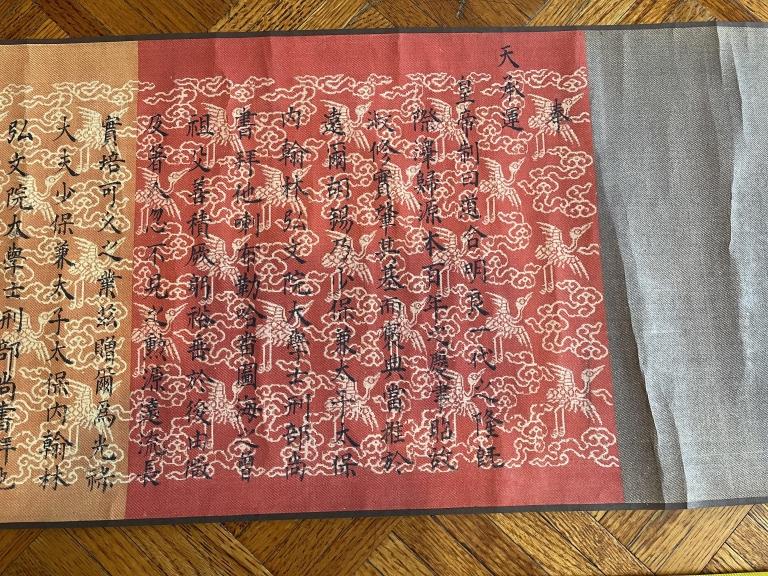 奉
天承運
皇帝制曰道合明良一代之隆旣
際歸源本百年之慶書昭故
淑修實肇其基而榮典當推於
遠爾胡錫乃少保兼太子太保
内翰林弘文院大學士刑部尚
書拜他喇布勒哈畨圖海之曾
祖父善積厥躬裕垂於後由微
及著人忽不見之勲源遠流長
實培可久之業茲贈爾為光祿
大夫少保兼太子太保内翰林
弘文院大學士刑部尚書拜他